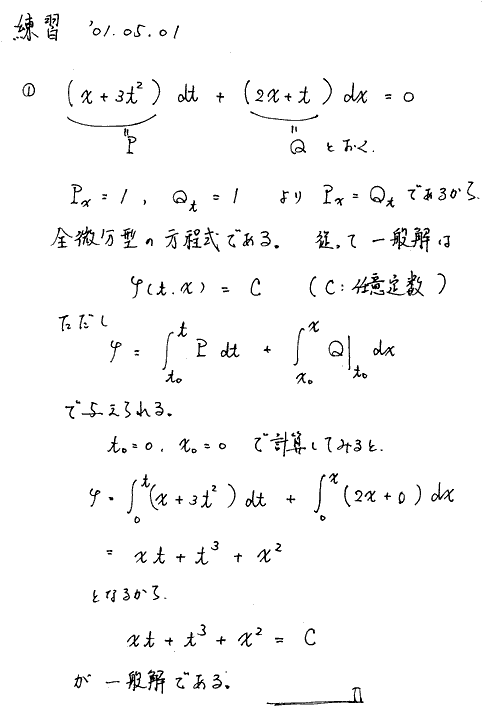 練習 '01.05.01
① (x + 3t²) dt + (2x + t) dx = 0
"P "Q とおく.
Pₓ = 1 , Qₜ = 1 より Pₓ = Qₜ であるから.
全微分型の方程式である。 従って一般解は
φ(t.x) = C (C:任意定数)
ただし
φ = ∫ₜ₀ᵗ P dt + ∫ₓ₀ˣ Q|ₜ₀ dx
で与えられる。
t₀=0, x₀=0 で計算してみると.
φ = ∫₀ᵗ (x + 3t²) dt + ∫₀ˣ (2x + 0) dx
= xt + t³ + x²
となるから.
xt + t³ + x² = C
が一般解である。